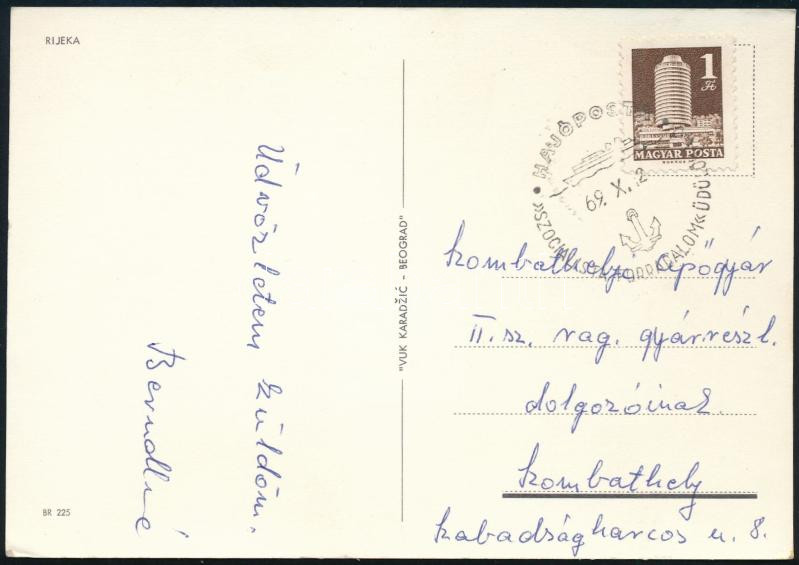 RIJEKA
Üdvözletem küldöm.
Berndlné
BR 225
"VUK KARADŽIĆ - BEOGRAD"
1
Ft
MAGYAR POSTA
HAJÓPOSTA
69. X. 2
"SZOCIALISTA FORRADALOM" ÜDÜLŐ
Szombathelyi Cipőgyár
II. sz. rag. gyárrészl.
dolgozóinak.
Szombathely
Szabadságharcos u. 8.